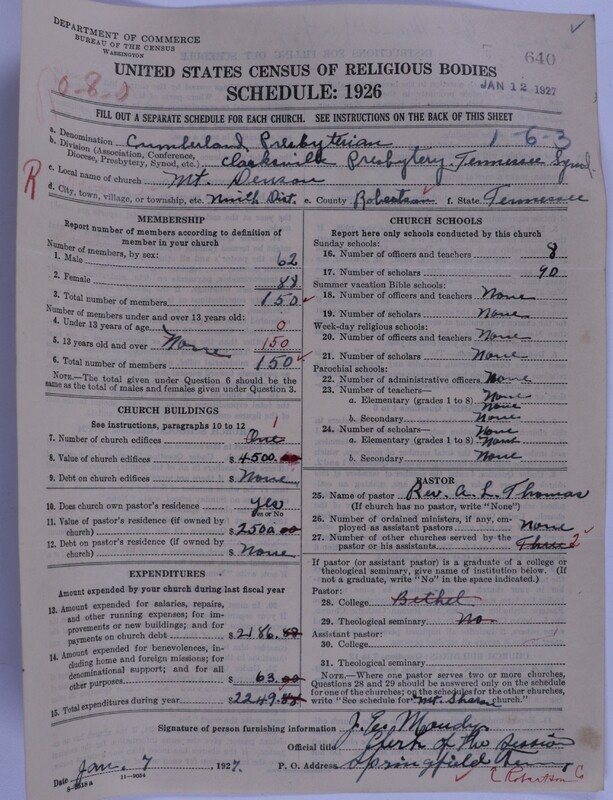 DEPARTMENT OF COMMERCE
BUREAU OF THE CENSUS
WASHINGTON
640
UNITED STATES CENSUS OF RELIGIOUS BODIES
JAN 12 1927
0-8-0
SCHEDULE: 1926
FILL OUT A SEPARATE SCHEDULE FOR EACH CHURCH. SEE INSTRUCTIONS ON THE BACK OF THIS SHEET
a. Denomination Cumberland Presbytrian 1-6-3
b. Division (Association, Conference, Diocese, Presbytery, Synod, etc.) Clarksville Presbytery, Tennessee Synod
R
c. Local name of church Mt. Denson
d. City, town, village, or township, etc. Ninth Dist. e. County Robertson f. State Tennessee
MEMBERSHIP
Report number of members according to definition of member in your church
Number of members, by sex:
1. Male 62
2. Female 88
3. Total number of members 150
Number of members under and over 13 years old:
4. Under 13 years of age 0
5. 13 years old and over None 150
6. Total number of members 150
NOTE.—The total given under Question 6 should be the same as the total of males and females given under Question 3.
CHURCH BUILDINGS
See instructions, paragraphs 10 to 12
7. Number of church edifices One 1
8. Value of church edifices $ 4500.00
9. Debt on church edifices $ None
10. Does church own pastor's residence yes
Yes or No
11. Value of pastor's residence (if owned by church) $ 2500.00
12. Debt on pastor's residence (if owned by church) $ None
EXPENDITURES
Amount expended by your church during last fiscal year
13. Amount expended for salaries, repairs, and other running expenses; for improvements or new buildings; and for payments on church debt $ 2186.88
14. Amount expended for benevolences, including home and foreign missions; for denominational support; and for all other purposes $ 63.00
15. Total expenditures during year $ 2249.88
CHURCH SCHOOLS
Report here only schools conducted by this church
Sunday schools:
16. Number of officers and teachers 8
17. Number of scholars 90
Summer vacation Bible schools:
18. Number of officers and teachers None
19. Number of scholars None
Week-day religious schools:
20. Number of officers and teachers None
21. Number of scholars None
Parochial schools:
22. Number of administrative officers None
23. Number of teachers— None
a. Elementary (grades 1 to 8) None
b. Secondary None
24. Number of scholars— None
a. Elementary (grades 1 to 8) None
b. Secondary None
PASTOR
25. Name of pastor Rev. A. L. Thomas
(If church has no pastor, write "None")
26. Number of ordained ministers, if any, employed as assistant pastors None
27. Number of other churches served by the pastor or his assistants Three 2
If pastor (or assistant pastor) is a graduate of a college or theological seminary, give name of institution below. (If not a graduate, write "No" in the space indicated.)
Pastor:
28. College Bethel
29. Theological seminary No
Assistant pastor:
30. College
31. Theological seminary
NOTE.—Where one pastor serves two or more churches, Questions 28 and 29 should be answered only on the schedule for one of the churches; on the schedules for the other churches, write "See schedule for Mt. Sharon church."
Signature of person furnishing information
Official title Clerk of the session
Date Jan. 7, 1927. P. O. Address Springfield Tenn,
11—9024
Robertson Co